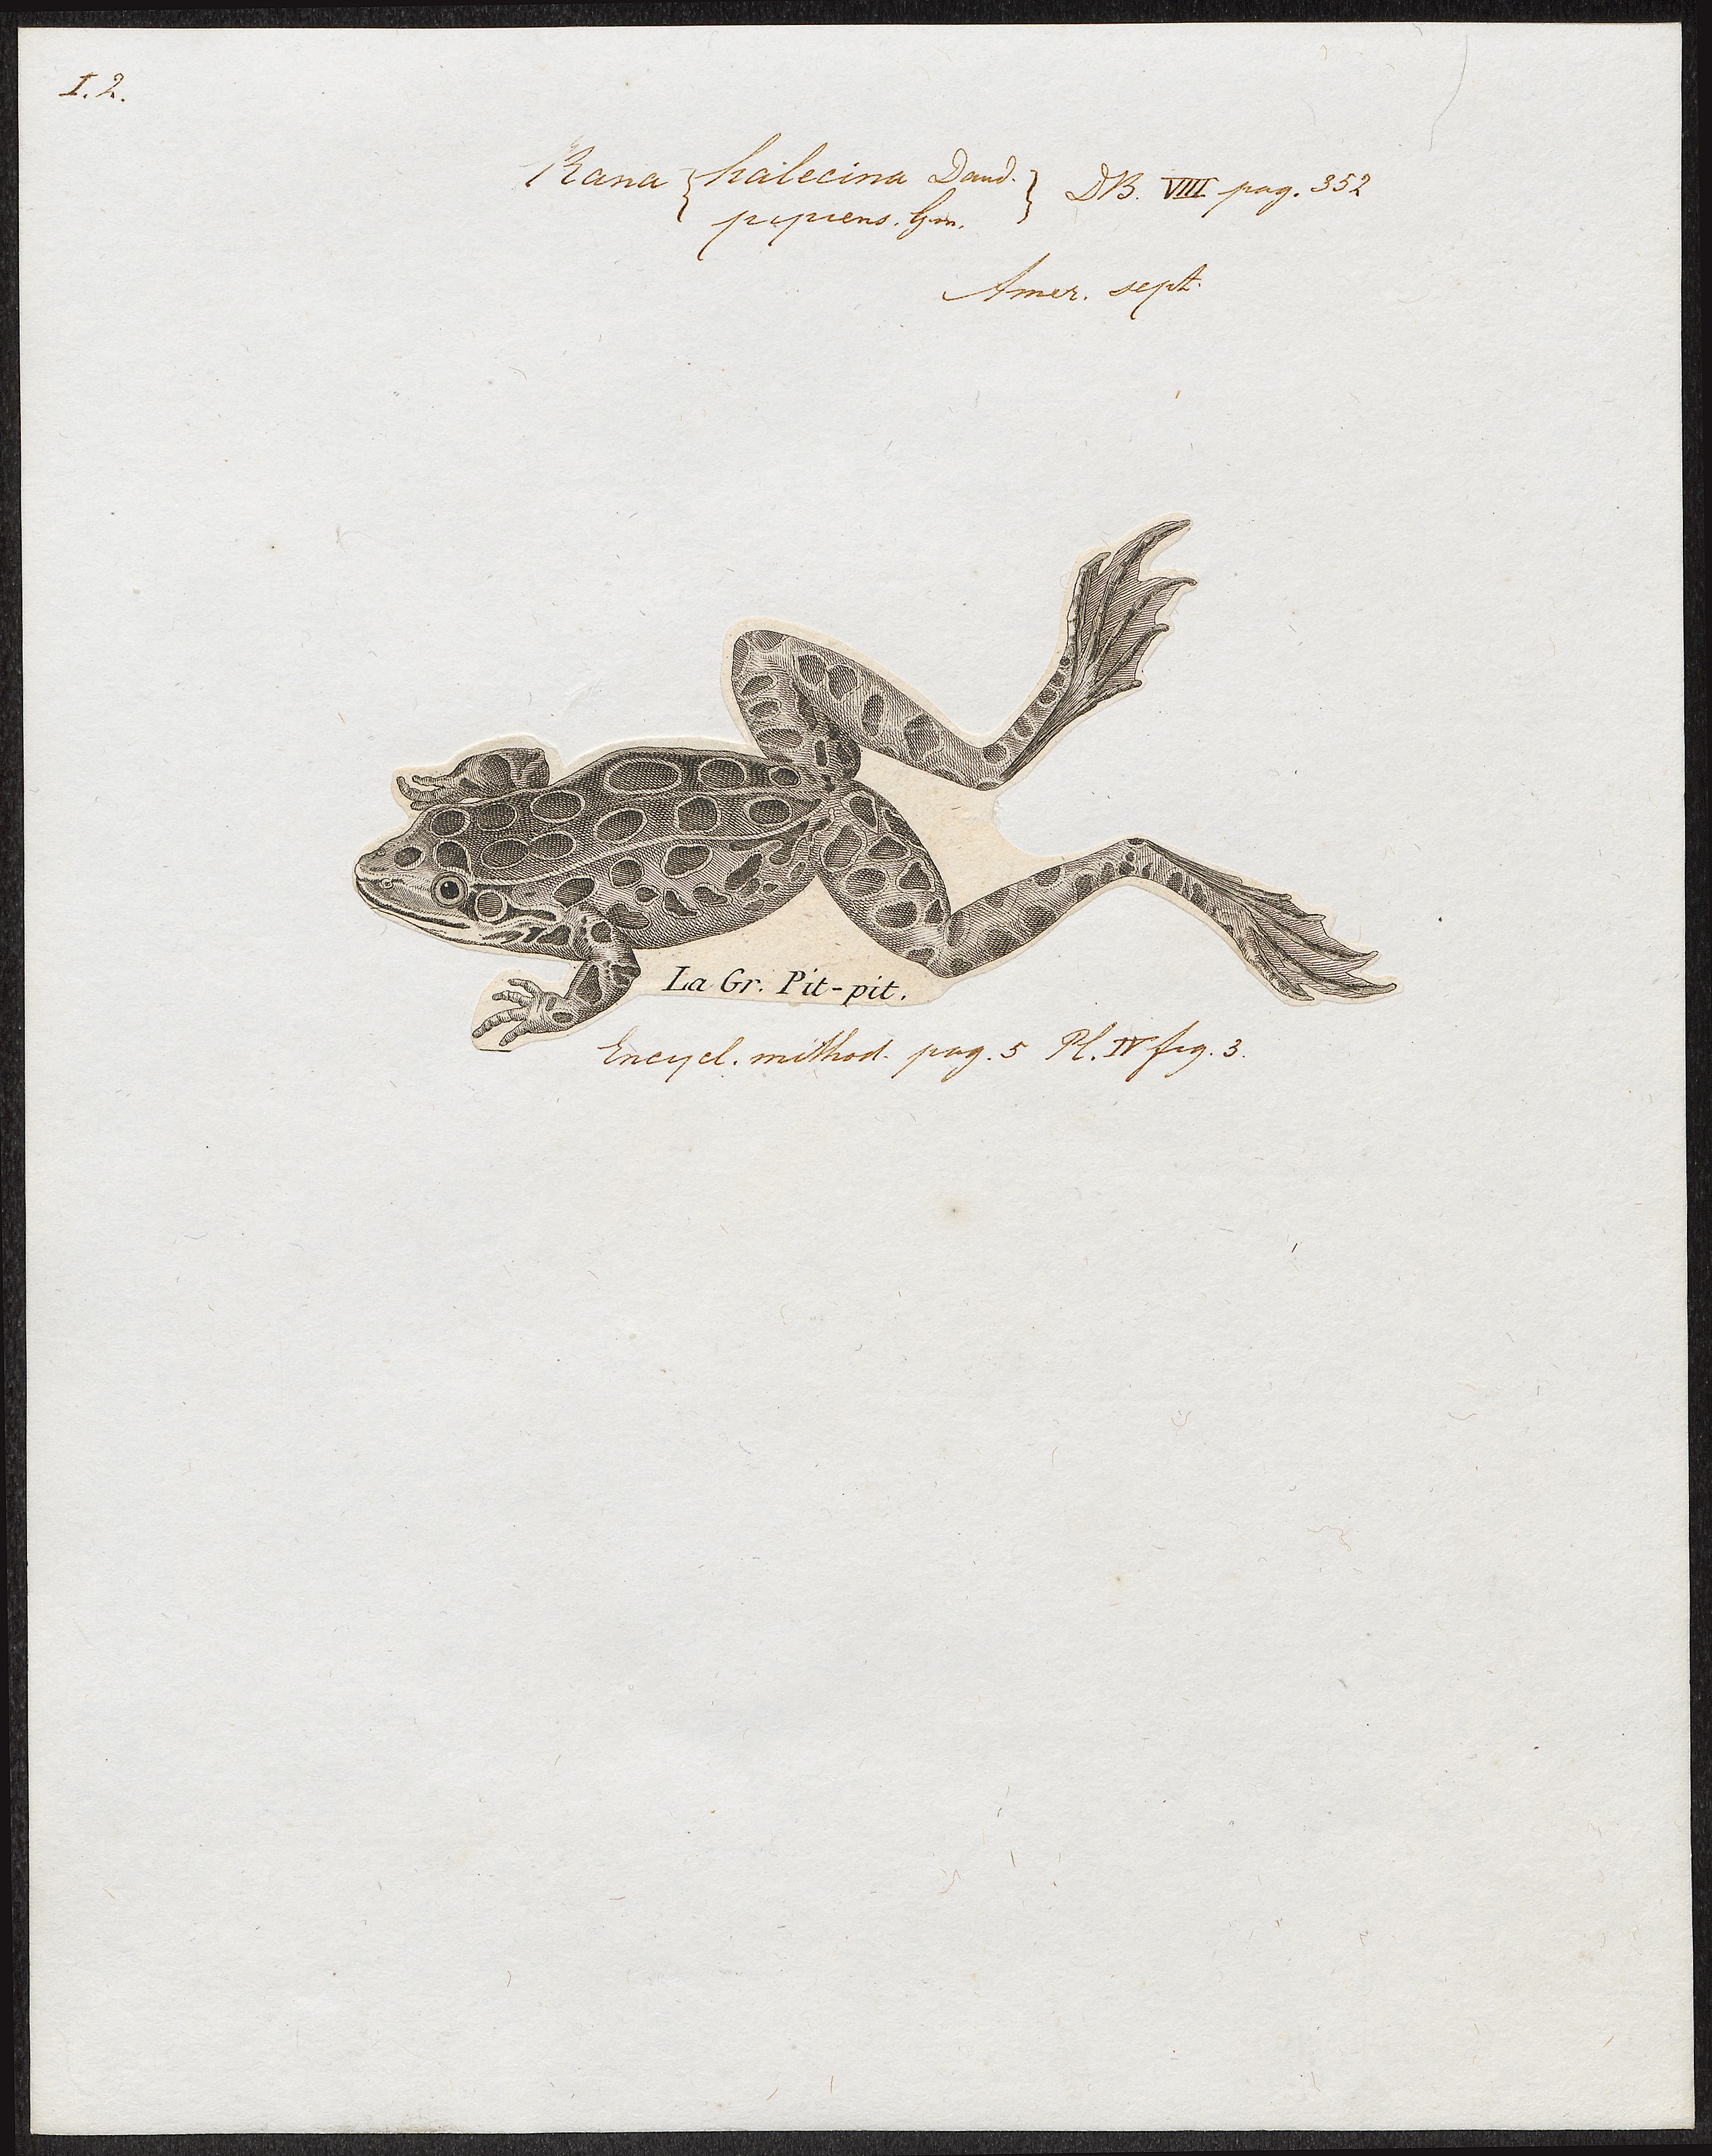 I. 2.
Rana { halecina Daud. } DB. VIII pag. 352
pipiens. Gm.
Amer. sept.
La Gr. Pit-pit.
Encycl. méthod. pag. 5 Pl. IV fig. 3.